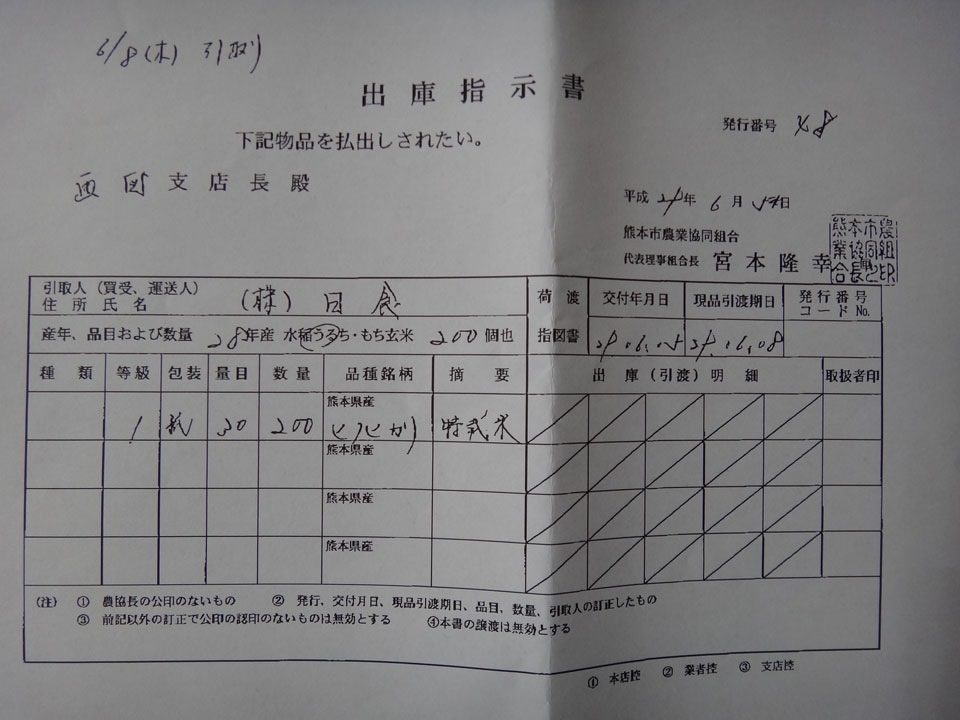 6/8(木) 引取り
出庫指示書
発行番号 48
下記物品を払出しされたい。
支店長殿
平成29年6月 日
熊本市農業協同組合
代表理事組合長 宮本隆幸
引取人(買受、運送人)
住所氏名 (株)日食
荷渡 交付年月日 現品引渡期日 発行番号
指図書 コードNo.
産年、品目および数量 28年産 水稲うるち・もち玄米 200個也 29.06.05 29.06.08
種類 等級 包装 量目 数量 品種銘柄 摘要 出庫(引渡)明細 取扱者印
熊本県産
1 紙 30 200
熊本県産
熊本県産
熊本県産
(注) ① 農協長の公印のないもの ② 発行、交付月日、現品引渡期日、品目、数量、引取人の訂正したもの
③ 前記以外の訂正で公印の認印のないものは無効とする ④本書の譲渡は無効とする
① 本店控 ② 業者控 ③ 支店控